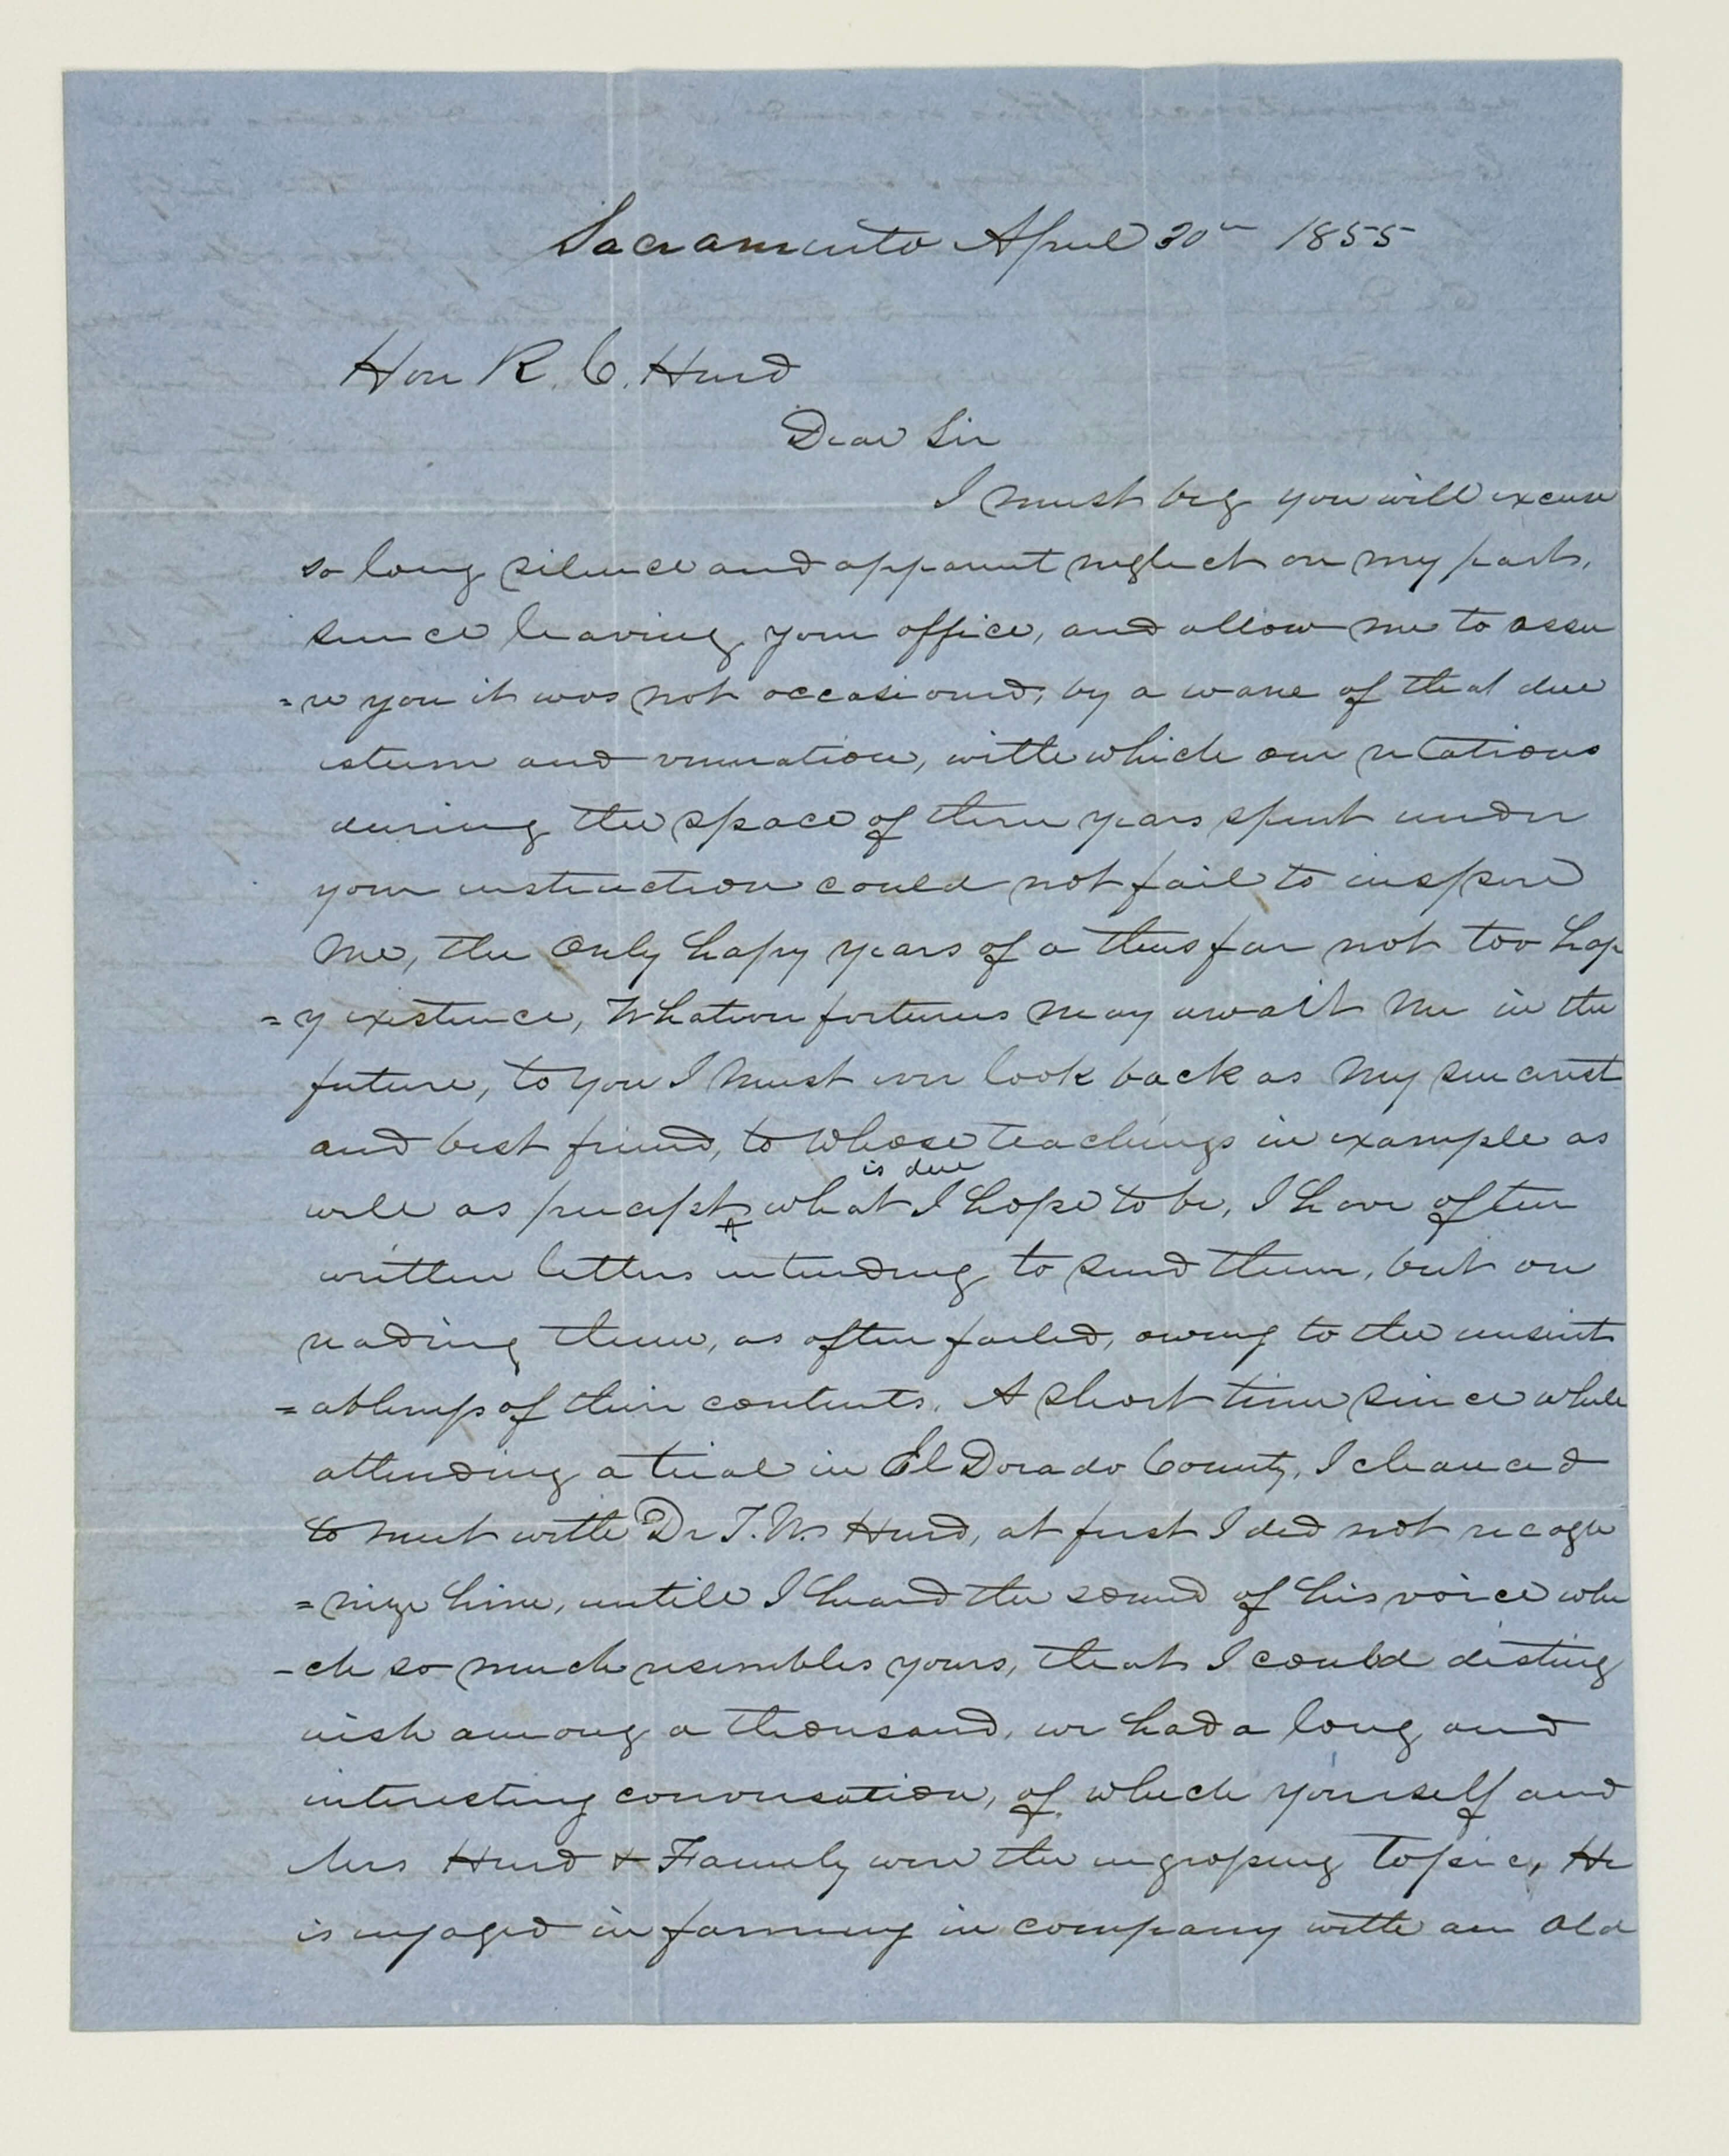 Sacramento April 30th 1855
Hon R. C. Hurd
Dear Sir
I must beg you will excuse
so long silence and apparent neglect on my part,
since leaving your office, and allow me to assu
=re you it was not occasioned, by a wane of that due
esteem and veneration, with which our relations
during the space of three years spent under
your instruction could not fail to inspire
me, the only hapy years of a thus far not too hap
=y existence, Whatever fortunes may await me in the
future, to you I must ever look back as my sincerest
and best friend, to whose teachings in example as
is due
well as precept ^ what I hope to be, I have often
written letters intending to send them, but on
reading them, as often failed, owing to the unsuit
=ableness of their contents. A short time since while
attending a trial in El Dorado County, I chanced
to meet with Dr T. W. Hurd, at first I did not recogn
=nize him, untill I heard the sound of his voice whi
-ch so much resembles yours, that I could disting
uish among a thousand, we had a long and
interesting conversation, of which yourself and
Mrs Hurd & Family were the engrossing topic, He
is engaged in farming in company with an old